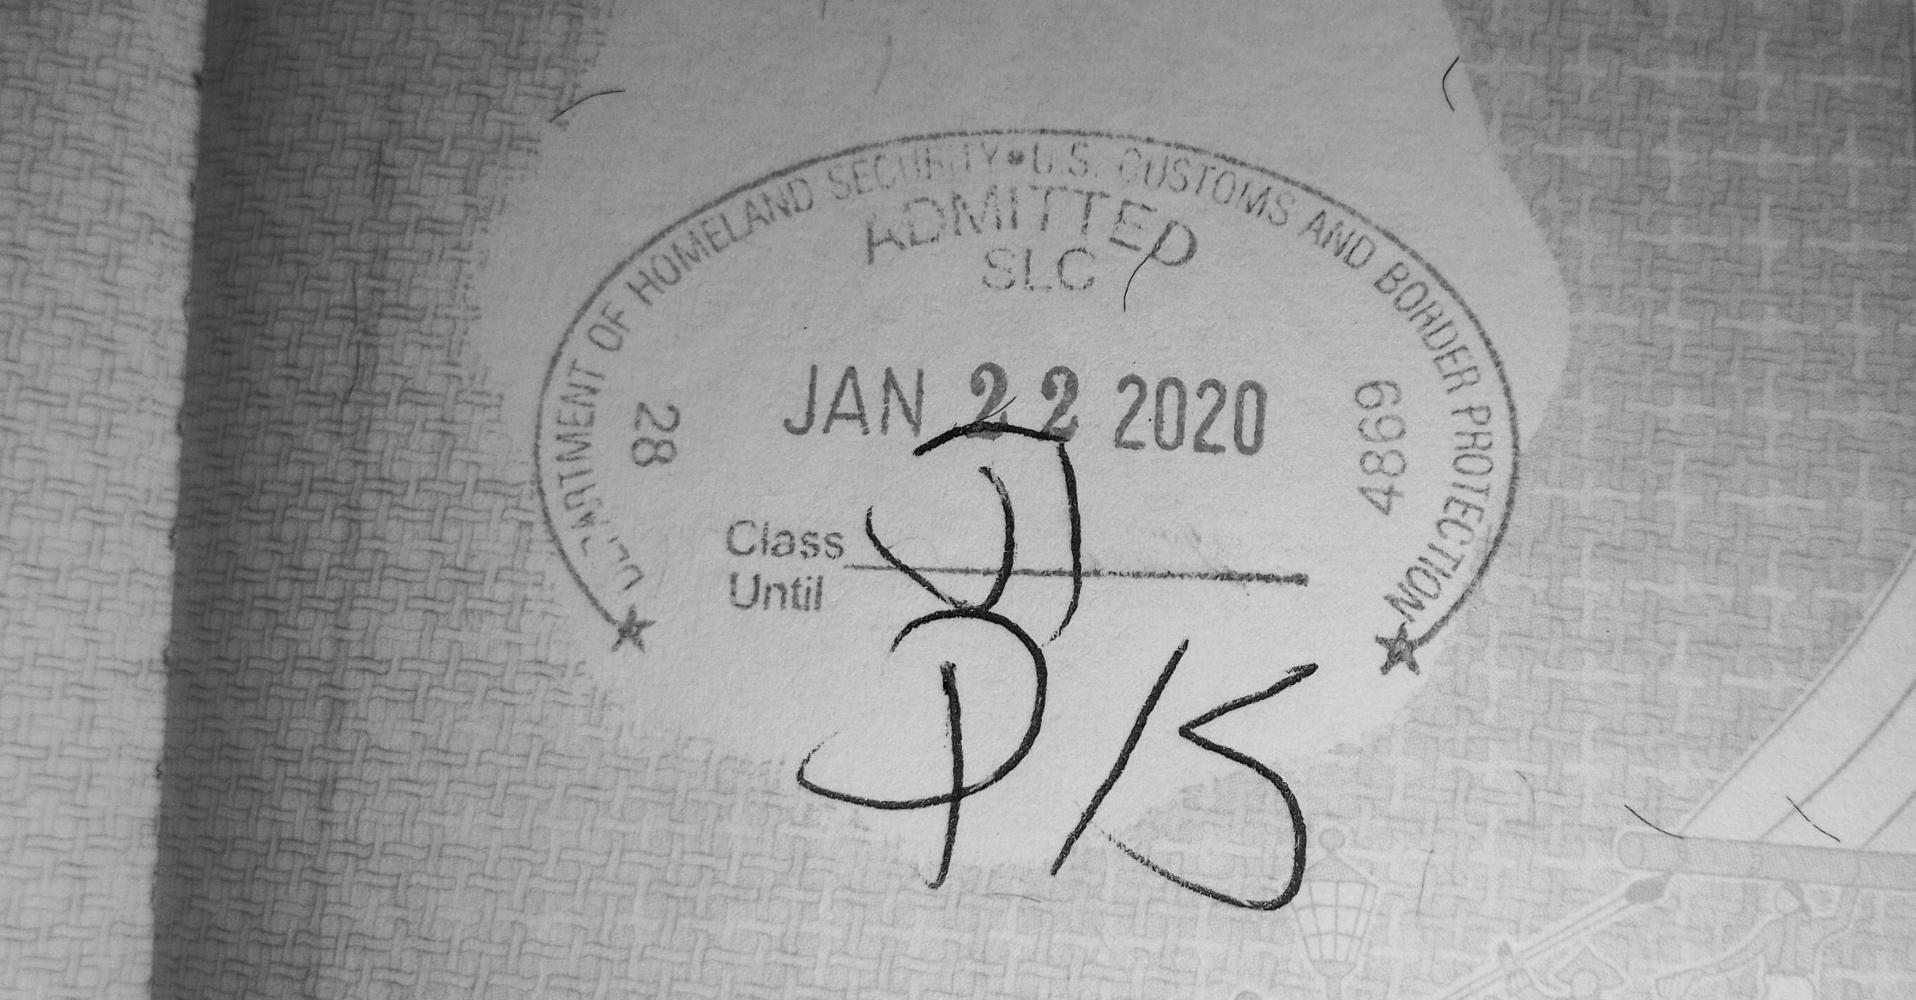 DEPARTMENT OF HOMELAND SECURITY • U.S. CUSTOMS AND BORDER PROTECTION
ADMITTED
SLC
28
JAN 22 2020
4869
Class J1
Until
D/S